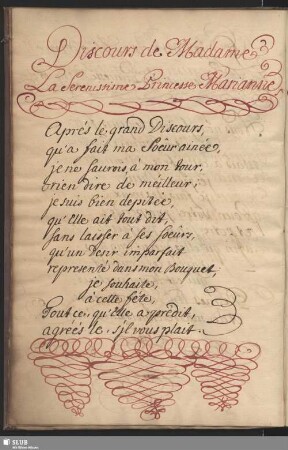 Discours de Madame
La Serenissime Princesse Marianne
Aprés le grand Discours,
qu'a fait ma Soeur ainée,
je ne saurois, à mon tour,
rien dire de meilleur;
je suis bien depitée,
qu'Elle ait tout dit,
sans laisser à ses soeurs,
qu'un Desir imparfait
representé dans mon Bouquet,
je souhaite,
à cette fête,
Tout ce, qu'elle a predit,
agrées le s'il vous plait.
SLUB